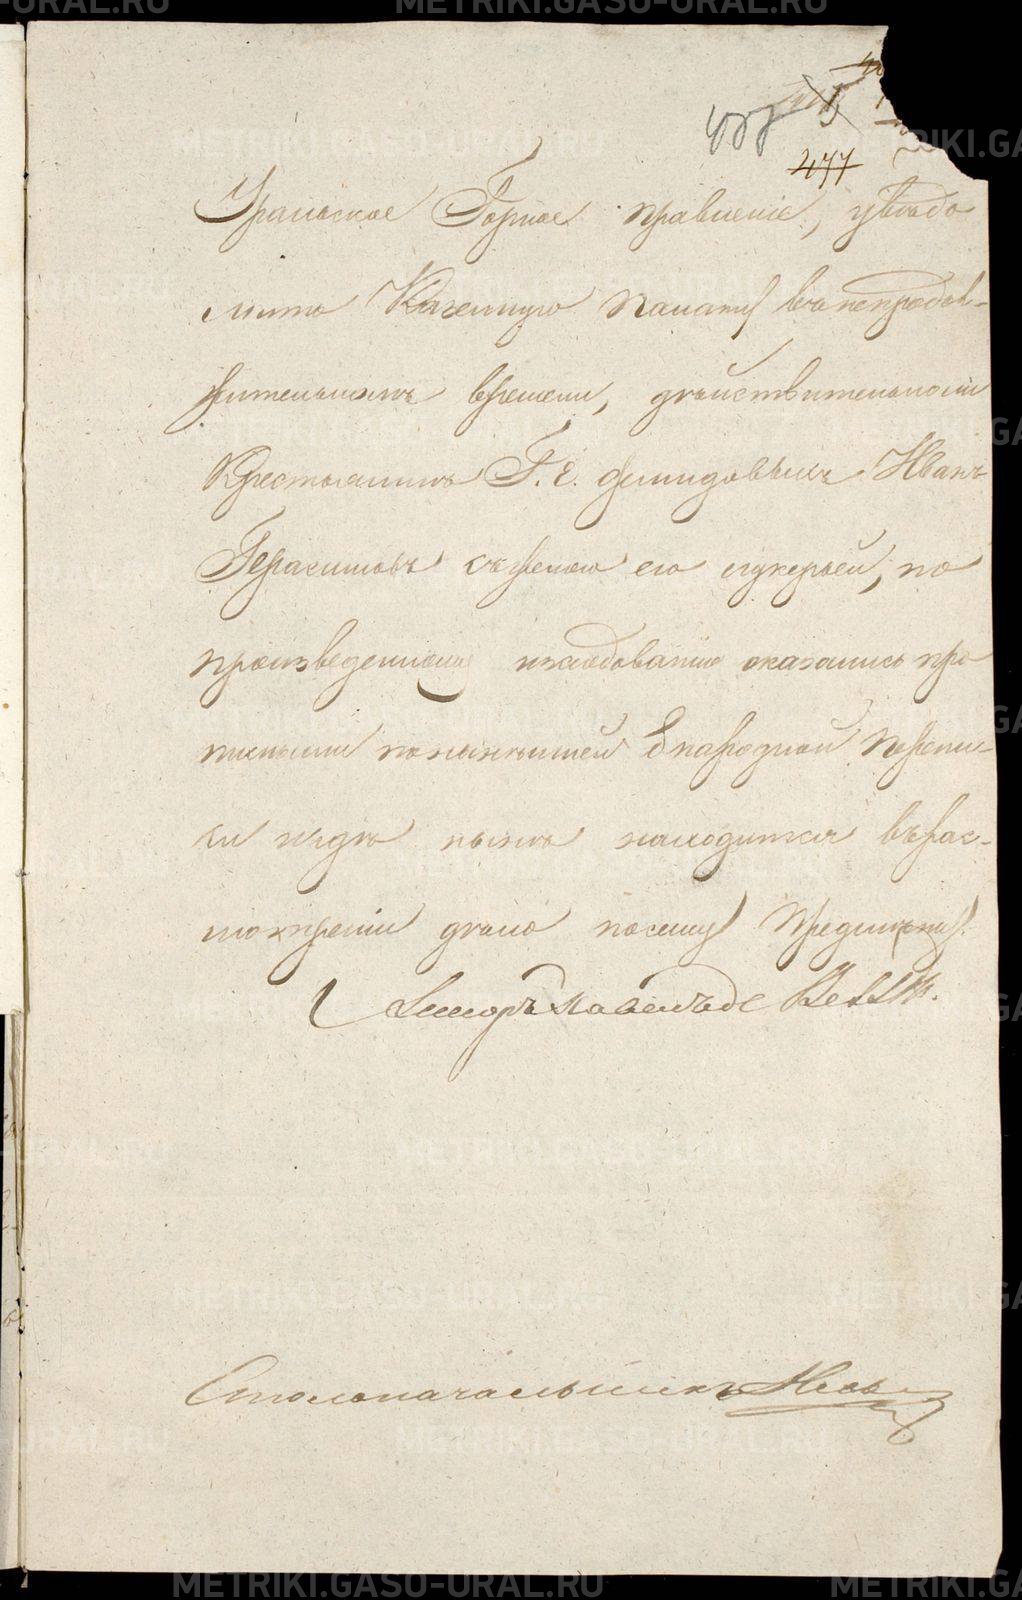 477
Уральское Горное правление, уведо
мить Казенную Палату въ непродол-
жительномъ времени, действительноли
Крестьянинъ Г.г. Демидовыхъ Иванъ
Герасимовъ съ женою его Лукерьей, по
произведенному изследованию оказались про
писными по нынешней 8 народной Переписи
и где ныне находится въ рас-
мотрении дело по сему предмету.
Столоначальникъ
METRIKI.GASO-URAL.RU